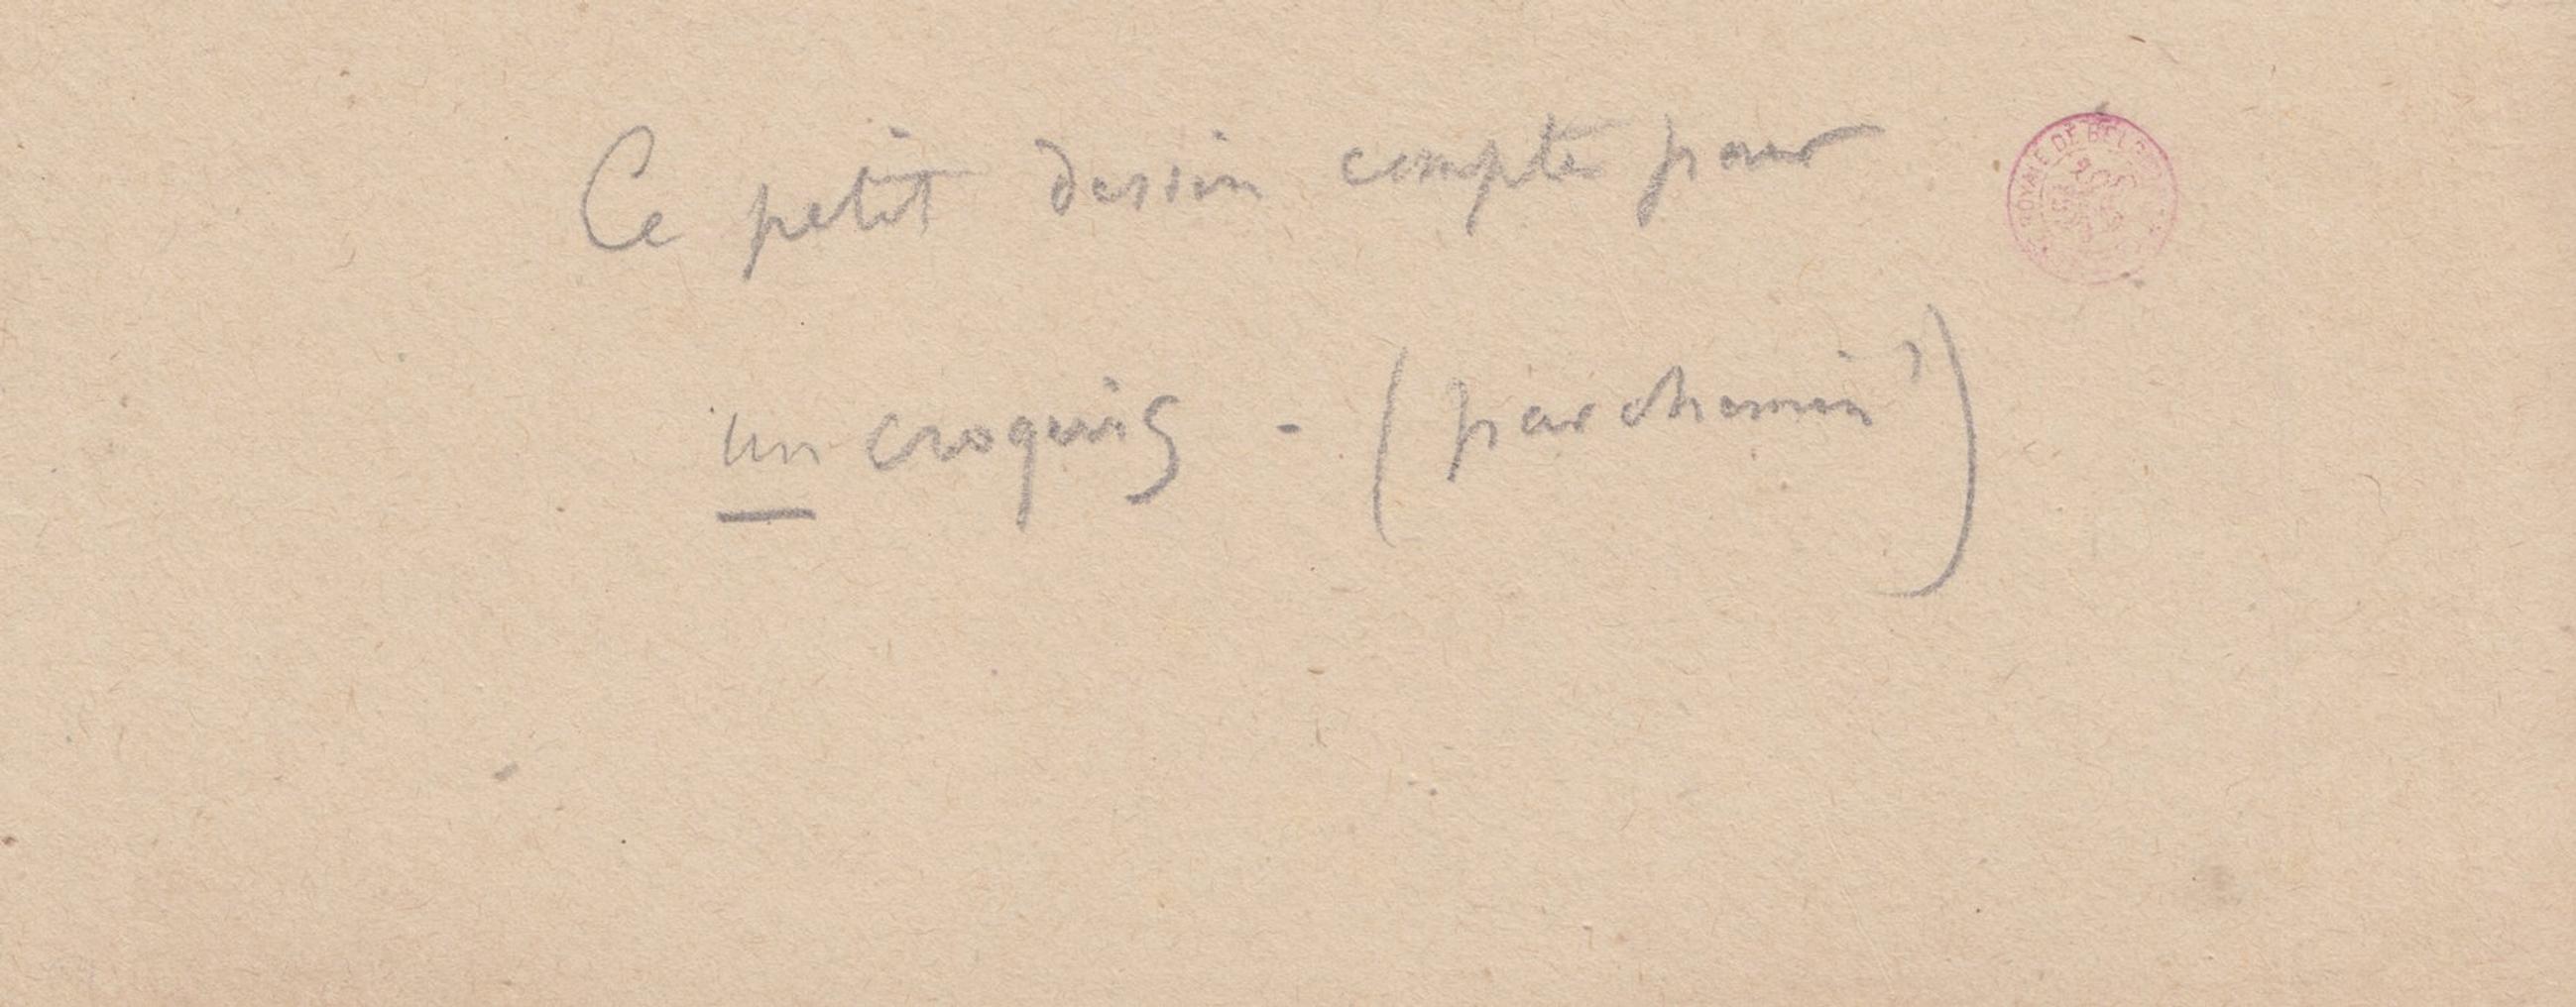 Ce petit dessin compte pour
un croquis - (parchemin)
ROYALE DE BELG